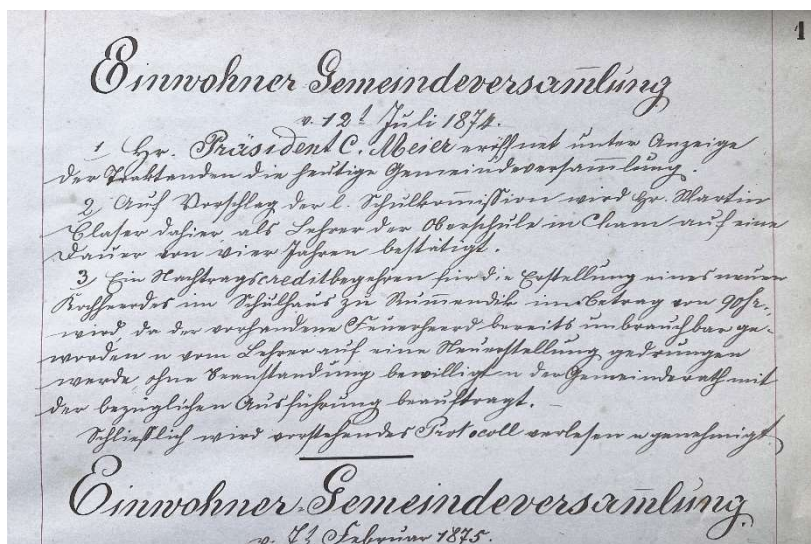 1
Einwohner Gemeindeversam̅lung
v. 12t Juli 1874.
1 Hr. Präsident C. Meier eröffnet unter Anzeige
der Traktanden die heutige Gemeindeversam̅lung.
2 Auf Vorschlag der l. Schulkom̅ission wird Hr. Martin
Blaser dahier als Lehrer der Oberschule in Cham auf eine
Dauer von vier Jahren bestätigt.
3 Ein Nachtragscreditbegehren für die Erstellung eines neuen
Kochheerdes im Schulhaus zu Rum̅endik im Betrag von 90 fr.,
wird, da der vorhandene Feuerheerd bereits unbrauchbar ge-
worden u vom Lehrer auf eine Neuerstellung gedrungen
werde, ohne Beanstandung bewilligt u der Gemeinderath mit
der bezüglichen Ausführung beauftragt. –
Schließlich wird vorstehendes Protocoll verlesen u genehmigt.
Einwohner-Gemeindeversam̅lung
v. 7t Februar 1875.